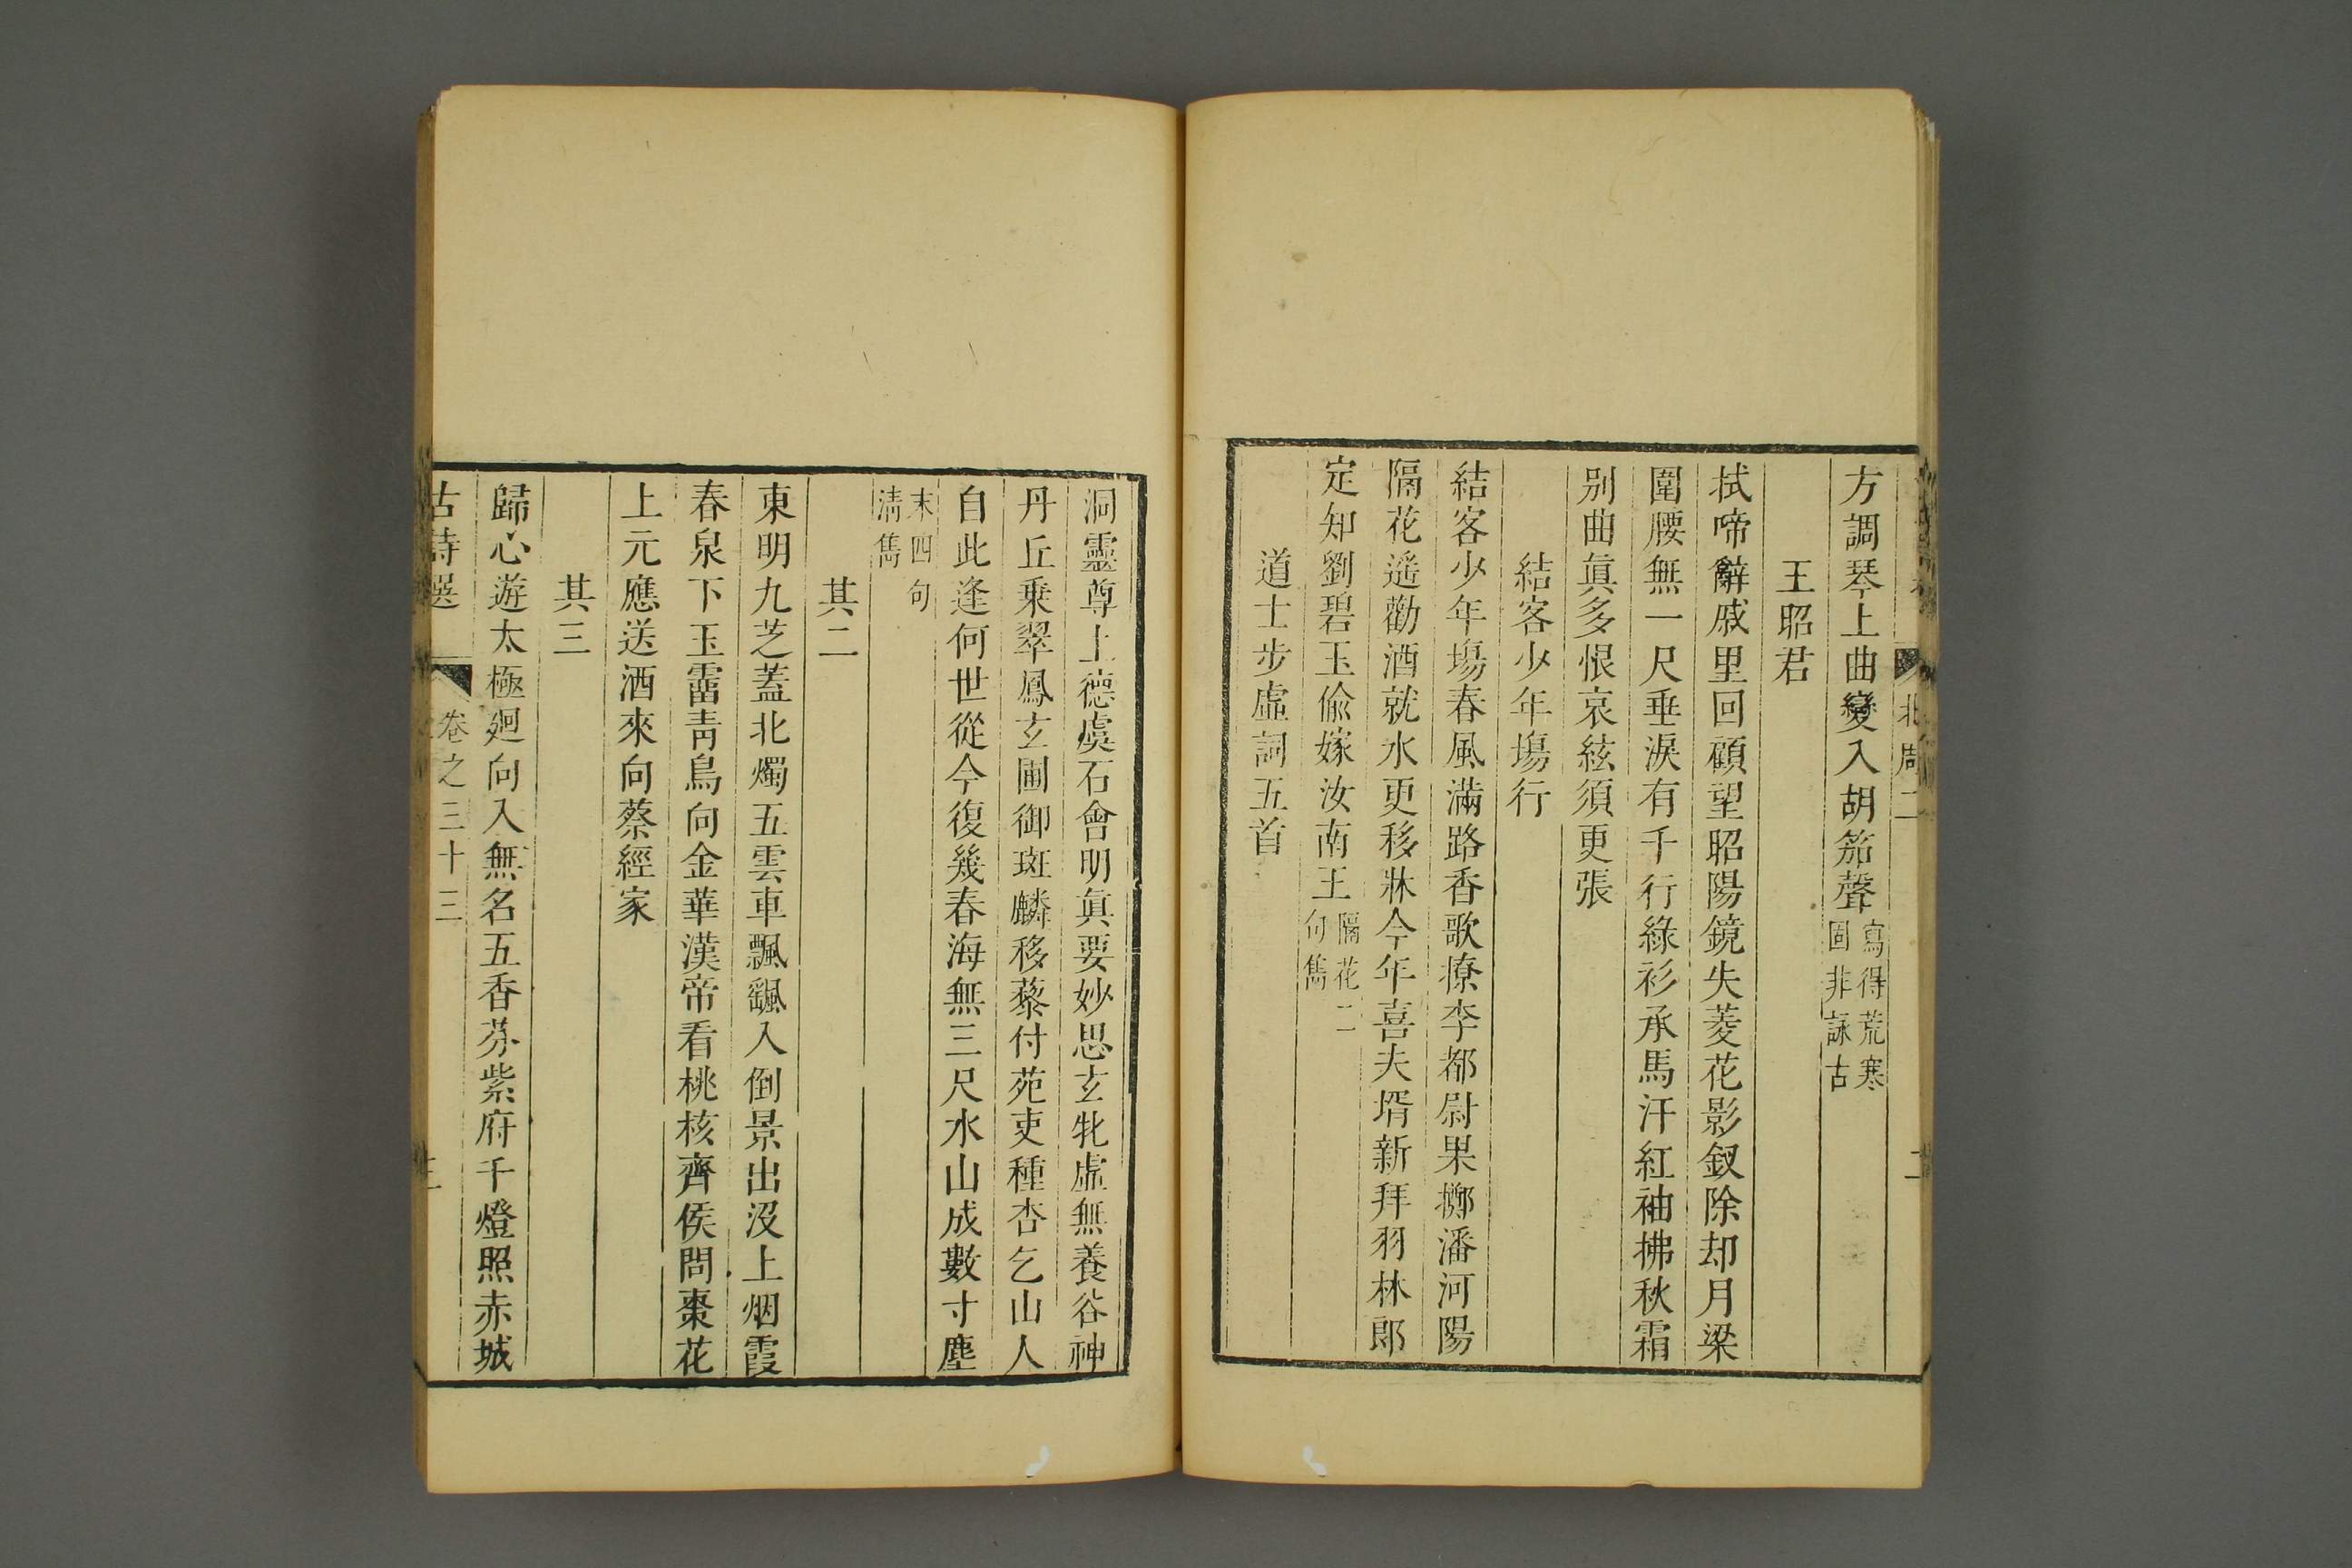 北周二
二
方調琴上曲變入胡笳聲寫得荒寒固非詠古
王昭君
拭啼辭戚里回顧望昭陽鏡失菱花影釵除却月梁
圍腰無一尺垂淚有千行綠衫承馬汗紅袖拂秋霜
别曲眞多恨哀絃須更張
結客少年塲行
結客少年塲春風滿路香歌撩李都尉果擲潘河陽
隔花遙勸酒就水更移牀今年喜夫壻新拜羽林郎
定知劉碧玉偷嫁汝南王隔花二句雋
道士步虛詞五首
洞靈尊上德虞石會明眞要妙思玄牝虛無養谷神
丹丘乗翠鳳玄圃御斑麟移蔾付苑吏種杏乞山人
自此逢何世從今復幾春海無三尺水山成數寸塵
末四句清雋
其二
東明九芝蓋北燭五雲車飄颻入倒景出沒上烟霞
春泉下玉霤靑鳥向金華漢帝看桃核齊侯問棗花
上元應送酒來向蔡經家
其三
歸心遊太極廻向入無名五香芬紫府千燈照赤城
古詩選 卷之三十三